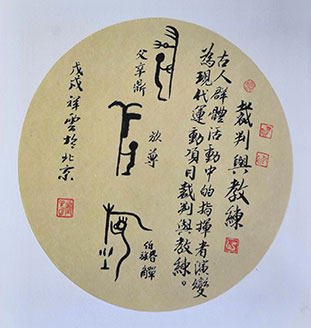 裁判與教練
古人群體活動中的指揮者演變
為現代運動項目裁判與教練。
父辛鼎
放尊
觶
戊戌祥雲於北京